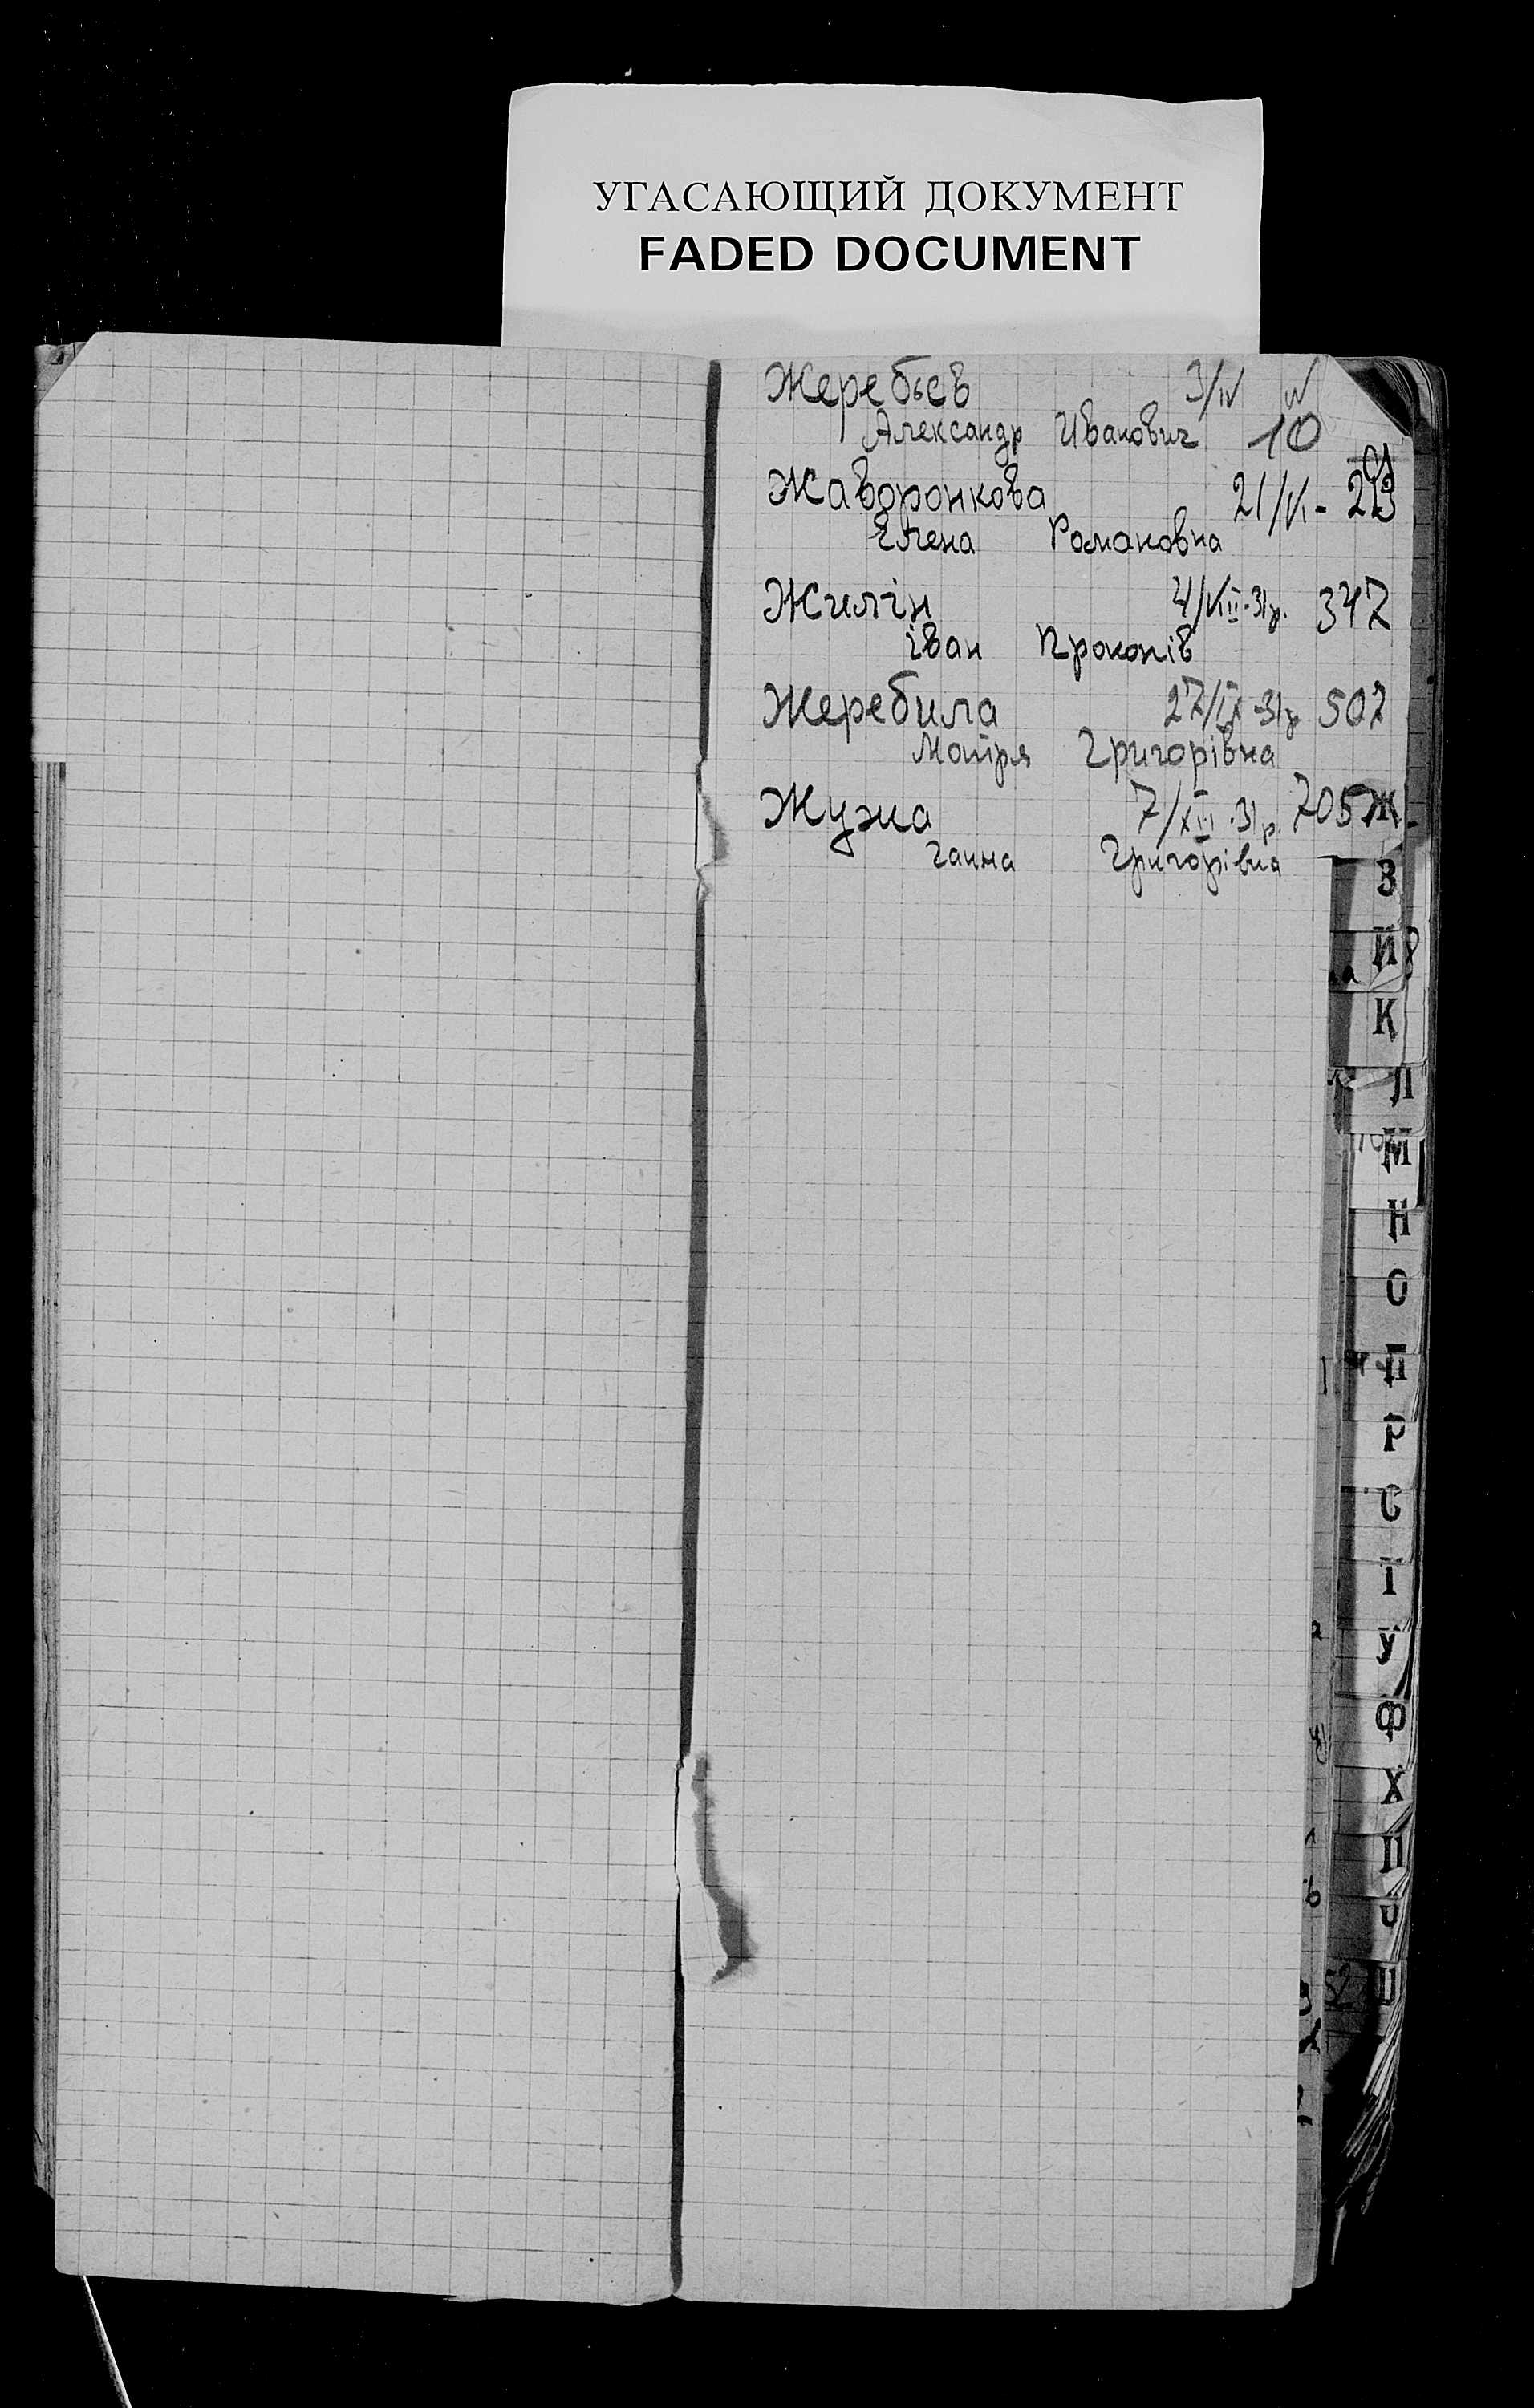 УГАСАЮЩИЙ ДОКУМЕНТ
FADED DOCUMENT
Жеребьев 3/IV
Александр Иванович 10
Жаворонкова 21/VI-
Елена Романовна
Жилін 4/VIII-31р. 347
Іван Прокопів
Жеребила 27/IX-31р 507
Мотря Григорівна
Жужа 7/XII-31р. 705
Ганна Григорівна
Ж
З
Й
К
Л
М
Н
О
П
Р
С
Т
У
Ф
Х